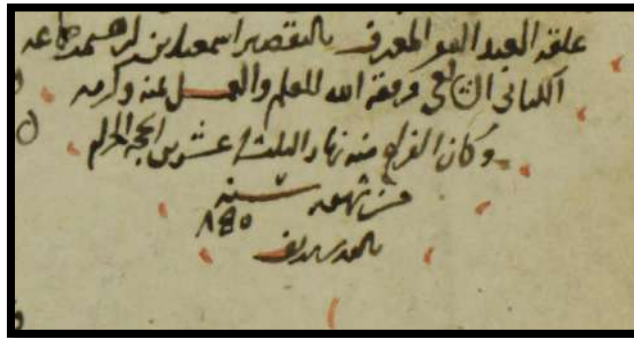 علقه العبد الفقير المعترف بالتقصير اسمعيل بن ابرهيم بن جماعه
الكناني الشافعي وفقه الله للعلم والعمل بمنه وكرمه
وكان الفراغ منه نهار الثلثا عشرين الحجة الحرام
من شهور سنة
٨٤٥
بالقدس الشريف